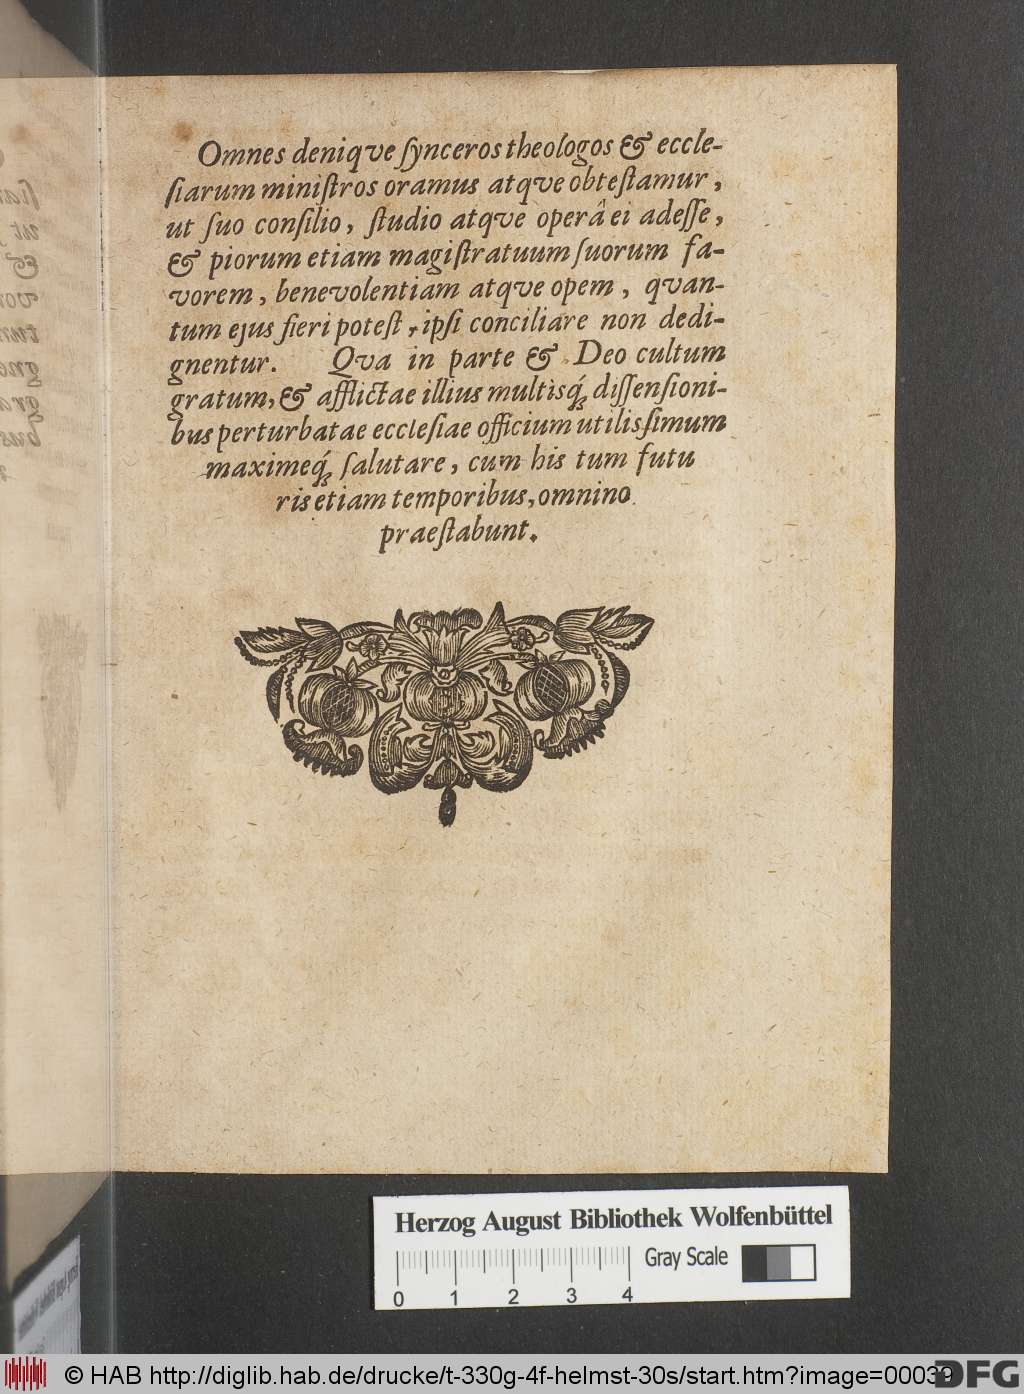 Omnes denique ſynceros theologos & eccle-
ſiarum miniſtros oramus atque obteſtamur,
ut ſuo conſilio, ſtudio atque operâ ei adeſſe,
& piorum etiam magiſtratuum ſuorum fa-
vorem, benevolentiam atque opem, quan-
tum ejus fieri poteſt, ipſi conciliare non dedi-
gnentur. Qva in parte & Deo cultum
gratum, & afflictae illius multisq́; diſſenſioni-
bus perturbatae eccleſiae officium utilisſimum
maximeq́; ſalutare, cum his tum futu
ris etiam temporibus, omnino
praeſtabunt.
Herzog August Bibliothek Wolfenbüttel
Gray Scale
0 1 2 3 4
© HAB http://diglib.hab.de/drucke/t-330g-4f-helmst-30s/start.htm?image=00039
DFG